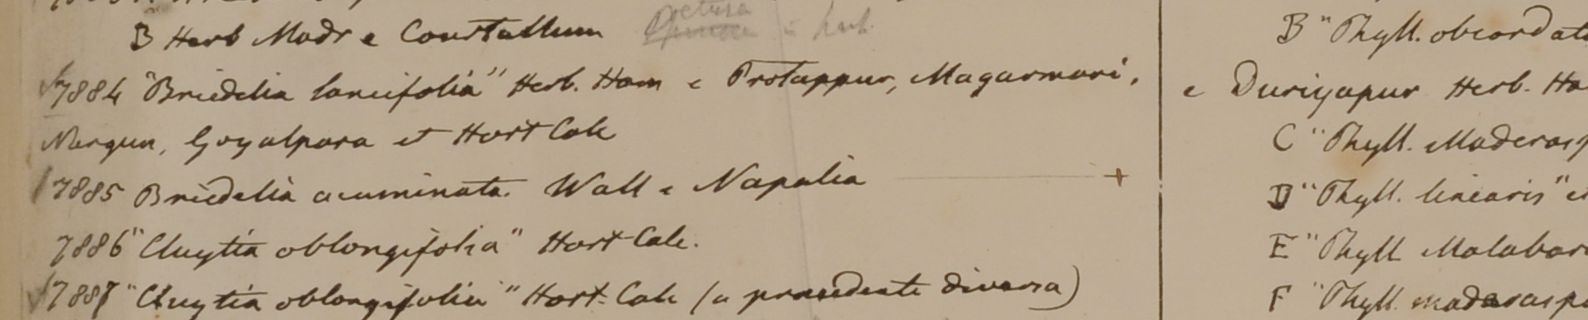 B Herb Madr e Courtallum
7884 "Briedelia lancifolia" Herb. Ham e Protappur, Magurmari,
Nurgun, Goyalpara et Hort Calc
7885 Briedelia acuminata. Wall e Napalia +
7886 "Cluytia oblongifolia" Hort Calc.
7887 "Cluytia oblongifolia" Hort. Calc (a praecedente diversa)
B "Phyll. obcordat
e Duriyapur Herb. Ha
C "Phyll. Maderasp
D "Phyll. linearis"
E "Phyll Malabar
F "Phyll. maderaspa